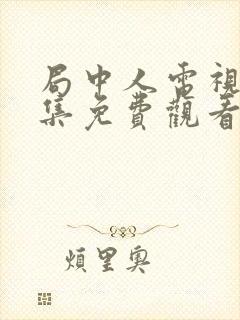 局中人電視
集免費觀看
煩里奧